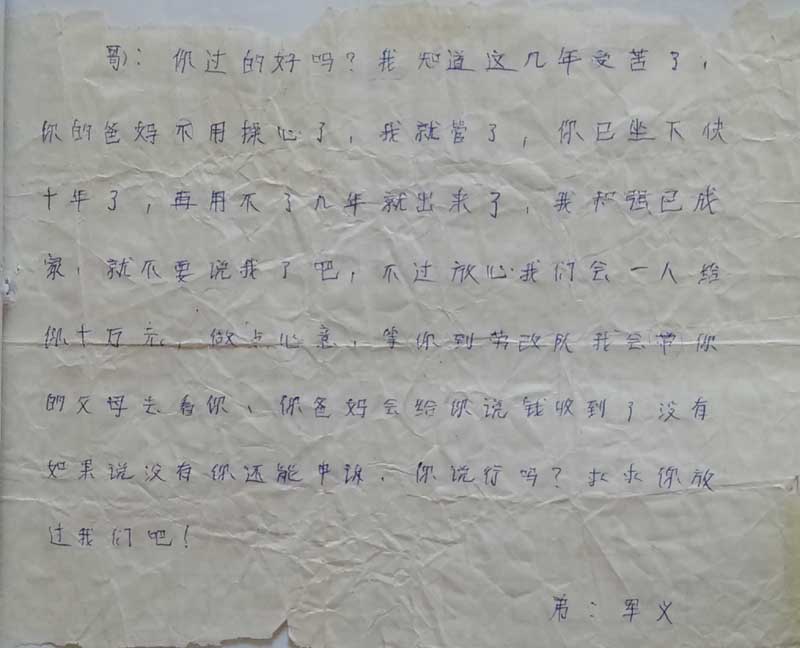 哥：你过的好吗？我知道这几年受苦了，
你的爸妈不用操心了，我就管了，你已坐下快
十年了，再用不了几年就出来了，我和强已成
家，就不要说我了吧，不过放心我们会一人给
你十万元，做点心意，等你到劳改队我会带你
的父母去看你、你爸妈会给你说钱收到了没有
如果说没有你还能申诉、你说行吗？求求你放
过我们吧！
弟：军义